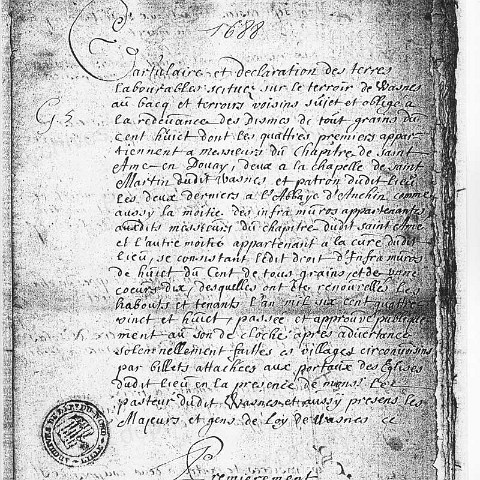 1688
Cartulaire et declaration des terres
labourables scitues sur le terroir de Wasnes
au bacq et terroirs voisins sujet et obligé a
la redevance des dismes de tout grains du
cent huict dont les quattres premiers appar-
tiennent a messieurs du Chapitre de saint
Amé en Douay, deux a la chapelle de saint
Martin dudit Wasnes et patron dudit lieu
les deux derniers a l'Abbaye d'Anchin comme
aussy la moitié des infra muros appartenantes
auxdits messieurs du chapitre dudit saint Amé
et l'autre moitié appartenant a la cure dudit
lieu, se consistant ledit droit d'Infra muros
de huict du Cent de tous grains et de
coeurs dix, desquelles ont été renouvellés les
habouts et tenants l'an mil six cent quattre
vinct et huict, passée et approuvé publique-
ment au son de cloche apres advertence
solemnellement faittes es villages circonvoisins
par billets attachees aux portaux des Eglises
dudit lieu en la presence de mons. le
pasteur dudit Wasnes et aussy presens les
Majeurs et gens de Loy de Wasnes
Premierement